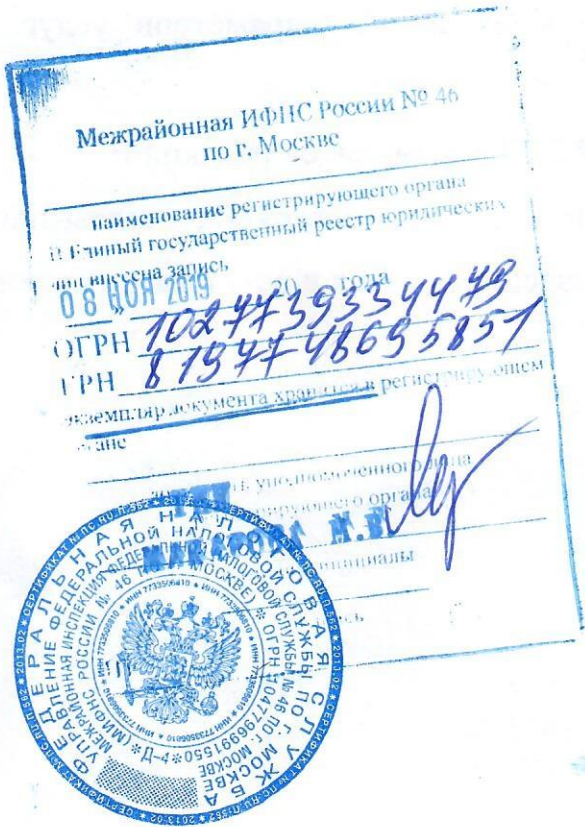 Межрайонная ИФНС России № 46
по г. Москве
наименование регистрирующего органа
В Единый государственный реестр юридических
лиц внесена запись
08 НОЯ 2019 20 года
ОГРН 1027739334479
ГРН 8197748695851
экземпляр документа хранится в регистрирующем
органе
уполномоченного лица
регистрирующего органа
инициалы
ФЕДЕРАЛЬНАЯ НАЛОГОВАЯ СЛУЖБА
УПРАВЛЕНИЕ ФЕДЕРАЛЬНОЙ НАЛОГОВОЙ СЛУЖБЫ ПО Г. МОСКВЕ
МЕЖРАЙОННАЯ ИНСПЕКЦИЯ ФЕДЕРАЛЬНОЙ НАЛОГОВОЙ СЛУЖБЫ № 46 ПО Г. МОСКВЕ
(МИФНС РОССИИ № 46 ПО Г. МОСКВЕ) * ОГРН 1047796991550
* Д-4 *